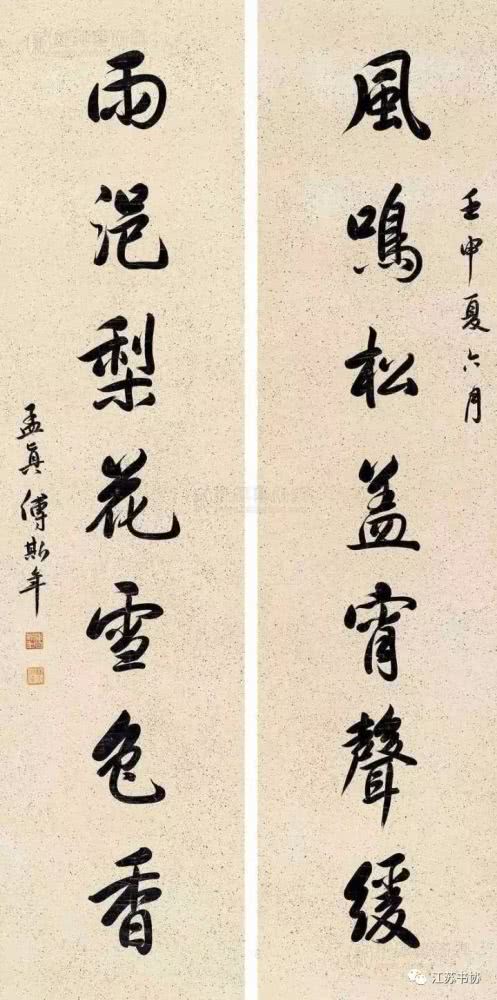 壬申夏六月
風鳴松盖宵聲緩
雨浥梨花雪色香
孟真傅斯年
江苏书协